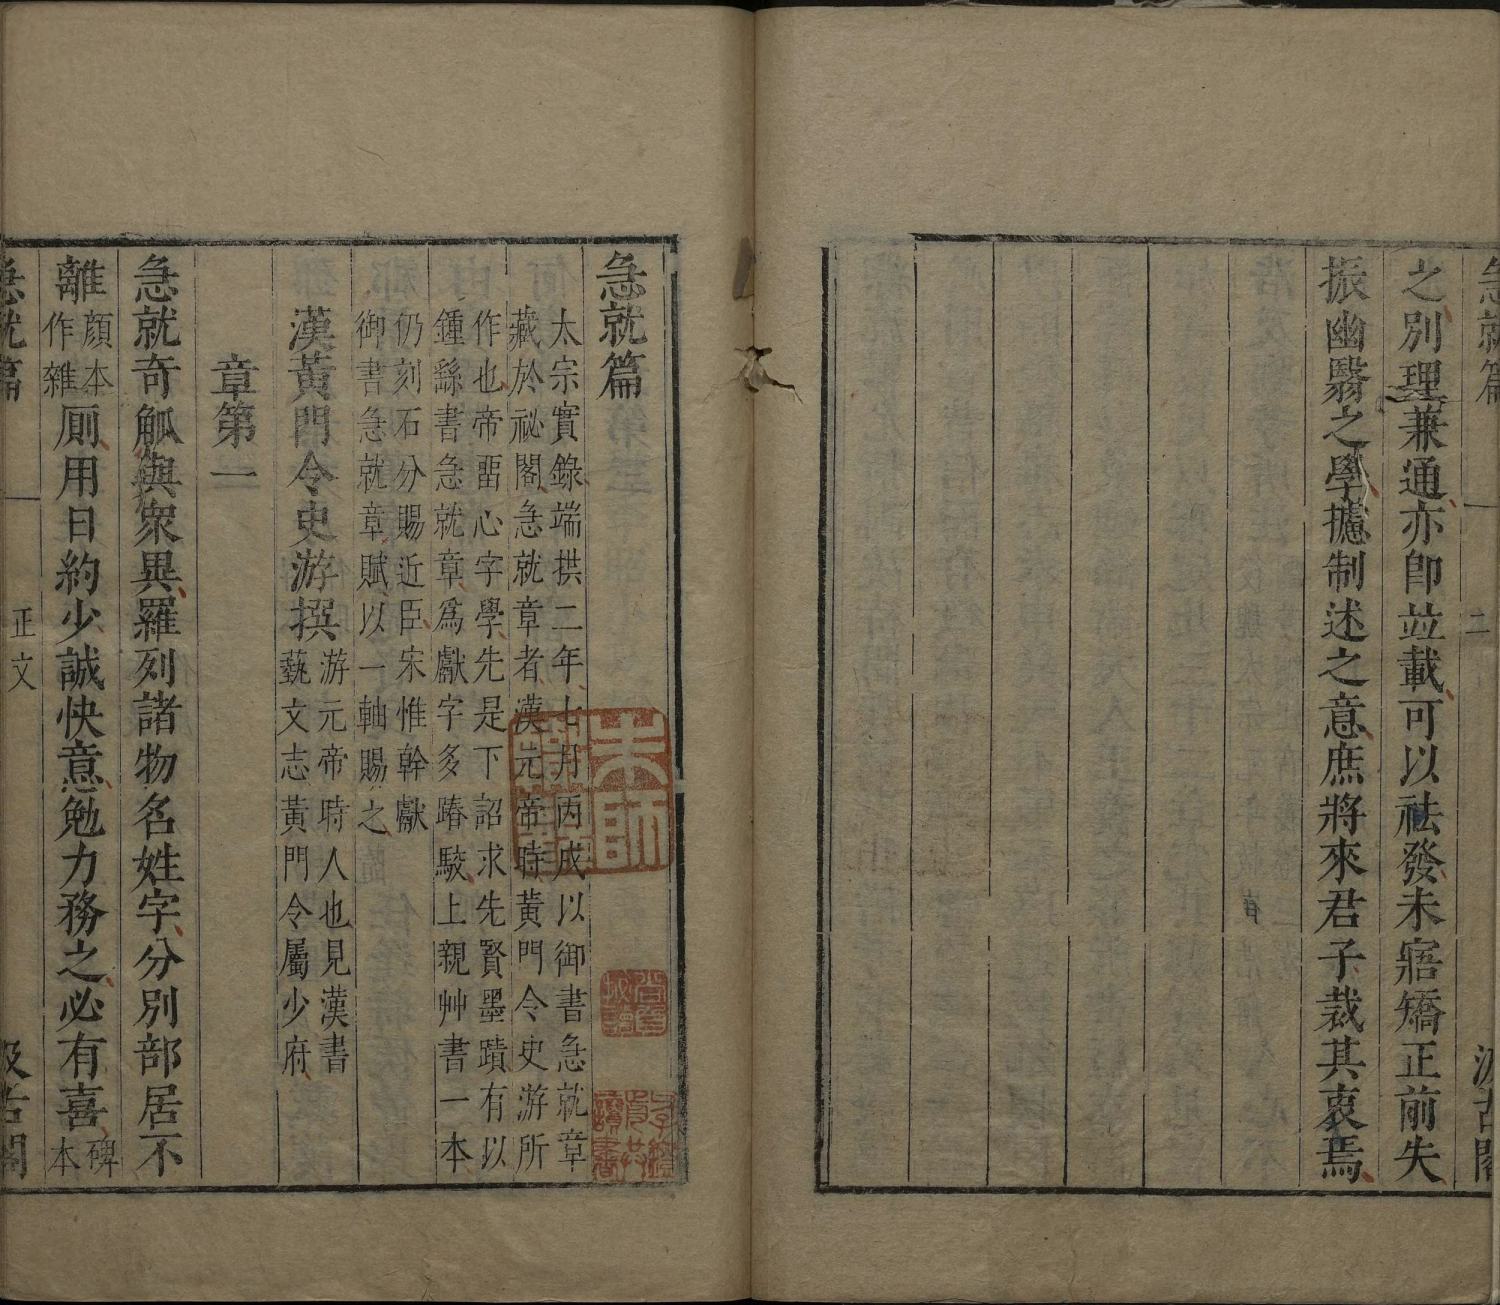 急就篇
二
汲古閣
之別理兼通亦卽竝載可以祛發未寤矯正前失
振幽翳之學攄制述之意庶將來君子裁其衷焉
急就篇
太宗實錄端拱二年七月丙戌以御書急就章
藏於祕閣急就章者漢元帝時黃門令史游所
作也帝畱心字學先是下詔求先賢墨蹟有以
鍾繇書急就章爲獻字多踳駮上親艸書一本
仍刻石分賜近臣宋惟幹獻
御書急就章賦以一軸賜之
漢黃門令史游撰游元帝時人也見漢書
藝文志黃門令屬少府
章第一
急就奇觚與衆異羅列諸物名姓字分別部居不
雜顏本
作雜廁用日約少誠快意勉力務之必有喜碑
本
急就篇
正文
汲古閣